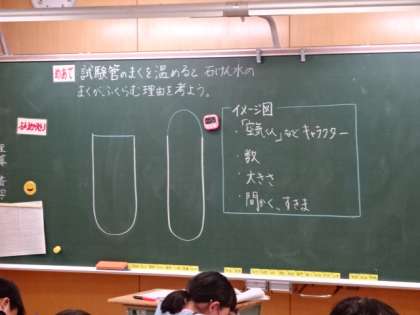 めあて 試験管のまくを温めると 石けん水の
まくが、ふくらむ理由を考よう。
イメージ図
・「空気くん」など キャラクター
・数
・大きさ
・間かく、すきま